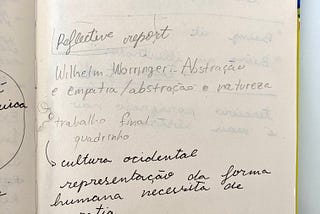 Reflective report
Wilhelm Worringer. Abstração
e empatia/abstração e natureza
trabalho final
quadrinho
cultura ocidental
representação da forma
humana necessita de